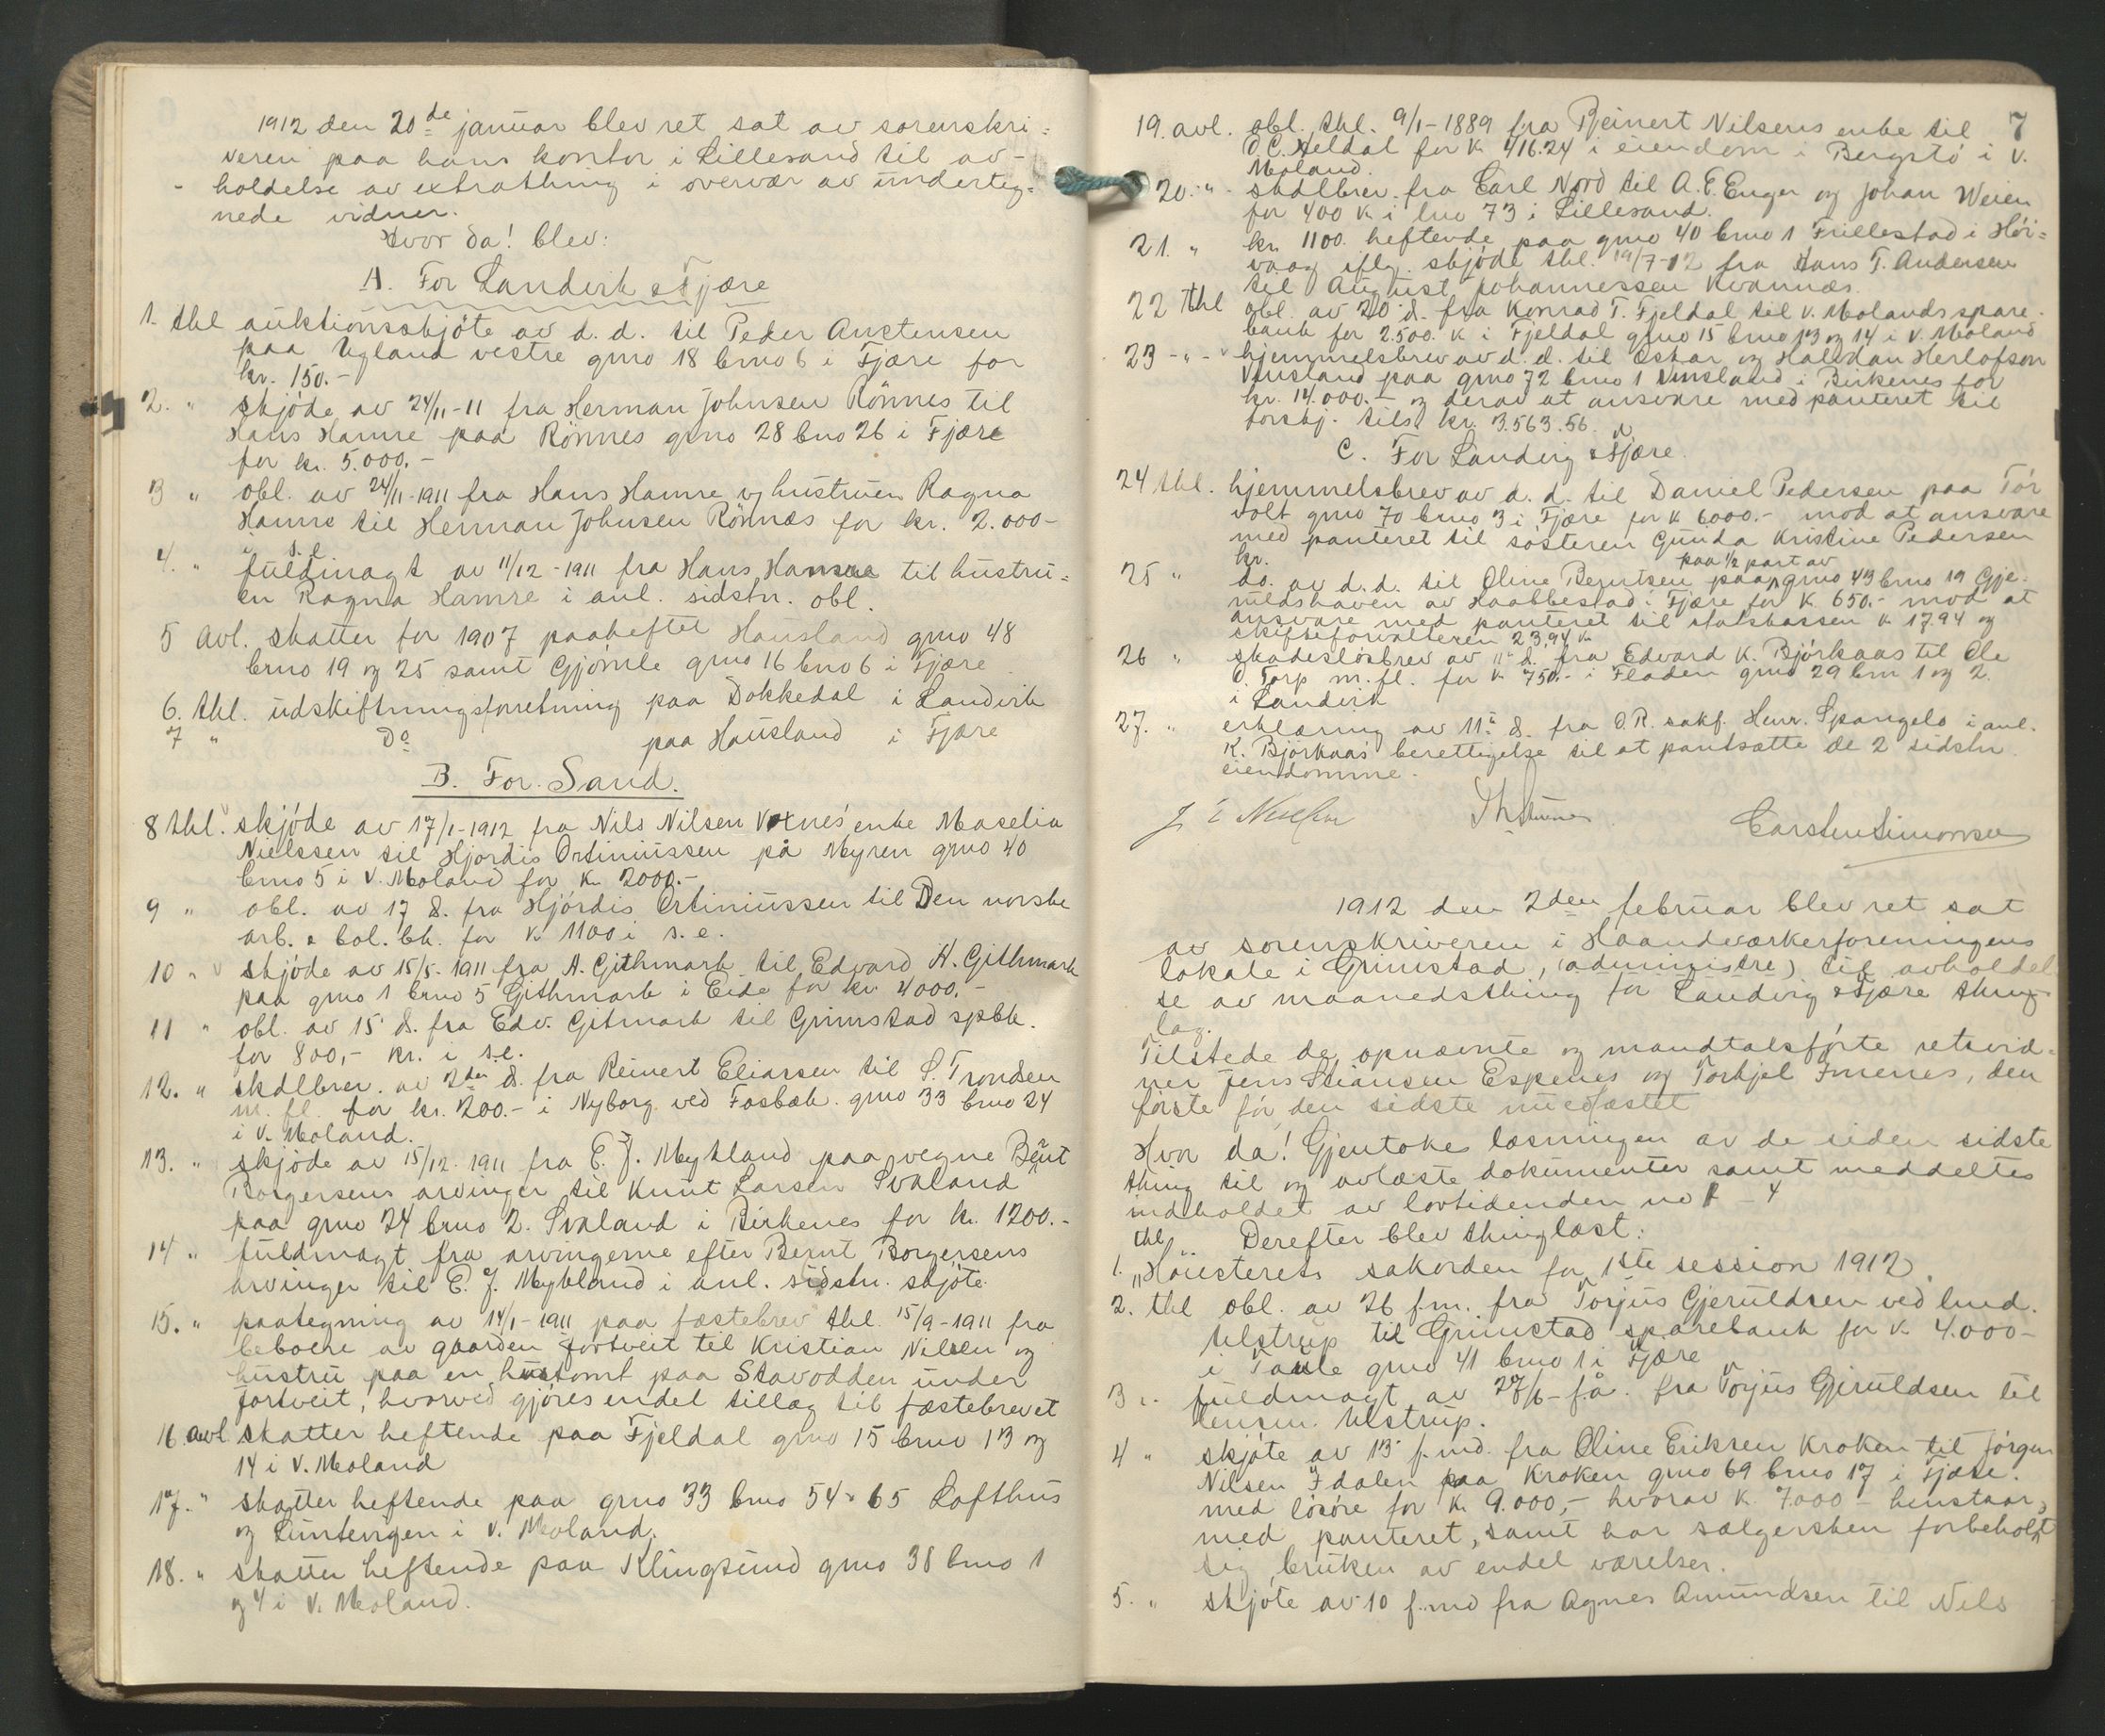 1912 den 20de januar blev ret sat av sorenskri=
veren paa hans kontor i Lillesand til av-
holdelse av extrathing i overvær av underteg=
nede vidner.
Hvor da! blev:
A. For Landvik & Fjære
1. thl auktionsskjöte av d. d. til Peder Austensen
paa Ugland vestre grno 18 brno 6 i Fjære for
kr. 150.-
2. " skjöde av 24/11-11 fra Herman Johnsen Rönnes til
Hans Hamre paa Rönnes grno 28 bno 26 i Fjære
for kr. 5.000.-
3 " obl. av 24/11-1911 fra Hans Hamre og hustruen Ragna
Hamre til Herman Johnsen Rönnæs for kr. 2.000-
i s.e.
4. " fuldmagt av 11/12-1911 fra Hans Hamre til hustru=
en Ragna Hamre i anl. sidstn. obl.
5 avl. skatter for 1907 paaheftet Hausland grno 48
brno 19 og 25 samt Gjömle grno 16 bno 6 i Fjære
6. thl. udskiftningsforretning paa Dokkedal i Landvik
7 " Do paa Hausland i Fjære
B. For Sand.
8 thl. skjöde av 17/1-1912 fra Nils Nilsen Voxnes' enke Maselia
Nielssen til Hjördis Ortiniussen på Myren grno 40
brno 5 i V. Moland for kr. 2000.-
9 " obl. av 17 ds. fra Hjördis Ortiniussen til Den norske
arb. & bol. bk. for kr 1100 i s.e.
10 " skjöde av 15/5-1911 fra A. Githmark til Edvard H. Githmark
paa grno 1 brno 5 Githmark i Eide for kr. 4000.-
11 " obl. av 15 ds. fra Edv. Gitmark til Grimstad spbk.
for 800,- kr. i s.e.
12. " skdlbrev. av 2den ds. fra Reinert Eliassen til S. Tronden
m. fl. for kr. 200.- i Nyborg ved Fosbæk. grno 33 brno 24
i V. Moland.
13. " skjöde av 15/12-1911 fra E. J. Mykland paa vegne Bent
Borgersens arvinger til Knut Larsen Svaland
paa grno 24 brno 2. Svaland i Birkenes for kr. 1200.-
14 " fuldmagt fra arvingerne efter Bernt Borgersens
arvinger til E. J. Mykland i anl. sidstn. skjöte
15. " paategning av 14/1-1911 paa fæstebrev thl. 15/9-1911 fra
beboere av gaarden Fortveit til Kristian Nilsen og
hustru paa en hustomt paa Stavodden under
Fortveit, hvorved gjöres endel tillæg til fæstebrevet
16. avl skatter heftende paa Fjeldal grno 15 brno 13 og
14 i V. Moland
17. " skatter heftende paa grno 33 bno 54 & 65 Lofthus
og Luntengen i V. Moland.
18. " skatter heftende paa Klingsund grno 38 bno 1
og 4 i V. Moland.
7
19. avl. obl. thl. 9/1-1889 fra Reinert Nilsens enke til
O C. Heldal for kr. 416.24 i eiendom i Bergstö i V.
Moland.
20. " skdlbrev. fra Carl Nord til A. E. Enger og Johan Weien
for 400 kr i lno 73 i Lillesand.
21. " kr. 1100. heftende paa grno 40 brno 1 Frillestad i Höi=
vaag iflg. skjöde thl. 19/7-02 fra Hans T. Andersen
til August Johannessen Kvannæs.
22 thl obl. av 20 ds. fra Konrad T. Fjeldal til V. Molands spare-
bank for 2.500. kr i Fjeldal grno 15 brno 13 og 14 i V. Moland
23 - " - hjemmelsbrev av d. d. til Oskar og Halvdan Herlofson
Vinsland paa grno 72 brno 1 Vinsland i Birkenes for
kr. 14.000.- og derav at ansvare med panteret til
forskj. tils. kr. 3.563.56.
C. For Landvig & Fjære.
24 thl. hjemmelsbrev av d. d. til Daniel Pedersen paa Tör
volt grno 70 brno 3 i Fjære for kr 6000.- mod at ansvare
med panteret til sösteren Gunda Kristine Pedersen
kr.
25 " do. av d.d. til Oline Berntsen paa paa 1/2 part av grno 43 brno 19 Gje-
ruldshaven av Haabbestad i Fjære for kr. 650.- mod at
ansvare med panteret til statskassen kr 17.94 og
skifteforvalteren 23,94 kr
26 " skadeslösbrev av 11te ds. fra Edvard K. Björkaas til Ole
O. Torp m. fl. for kr. 750.- i Fladen grno 29 brn 1 og 2.
i Landvik
27. " erklæring av 11te ds. fra O.R. sakf. Henr. Spangelo i anl.
K. Björkaas' berettigelse til at pantsætte de 2 sidstn
eiendomme.
Carsten Simonsen
1912 den 2den februar blev ret sat
av sorenskriveren i Haandværkerforeningens
lokale i Grimstad, (administre) til avholdel
se av maanedsthing for Landvig & Fjære thing
lag.
Tilstede de opnævnte og mandtalsförte retsvid-
ner Jens Stiansen Espenes og Torkjel Imenes, den
förste för, den sidste nu edfæstet
Hvor da! Gjentokes læsningen av de siden sidste
thing til og avlæste dokumenter samt meddeltes
indholdet av lovtidenden no 1 - 4
thl " Derefter blev thinglæst:
1. " Höiesterets sakorden for 1ste session 1912.
2. thl obl. av 26 f.m. fra Torjus Gjeruldsen ved lensm.
Ulstrup til Grimstad sparebank for kr. 4.000-
i Taule grno 41 brno 1 i Fjære
3 " fuldmagt av 27/6 f.å. fra Torjus Gjeruldsen til
lensm. Ulstrup.
4 " skjöte av 13 f. md. fra Oline Eriksen Kroken til Jörgen
Nilsen Idalen paa Kroken grno 69 brno 17 i Fjære.
med lösöre for kr. 9.000,- hvorav kr. 7.000- henstaar
med panteret, samt har sælgersken forbeholdt
sig bruken av endel værelser.
5. " skjöte av 10 f. md fra Agnes Amundsen til Nils